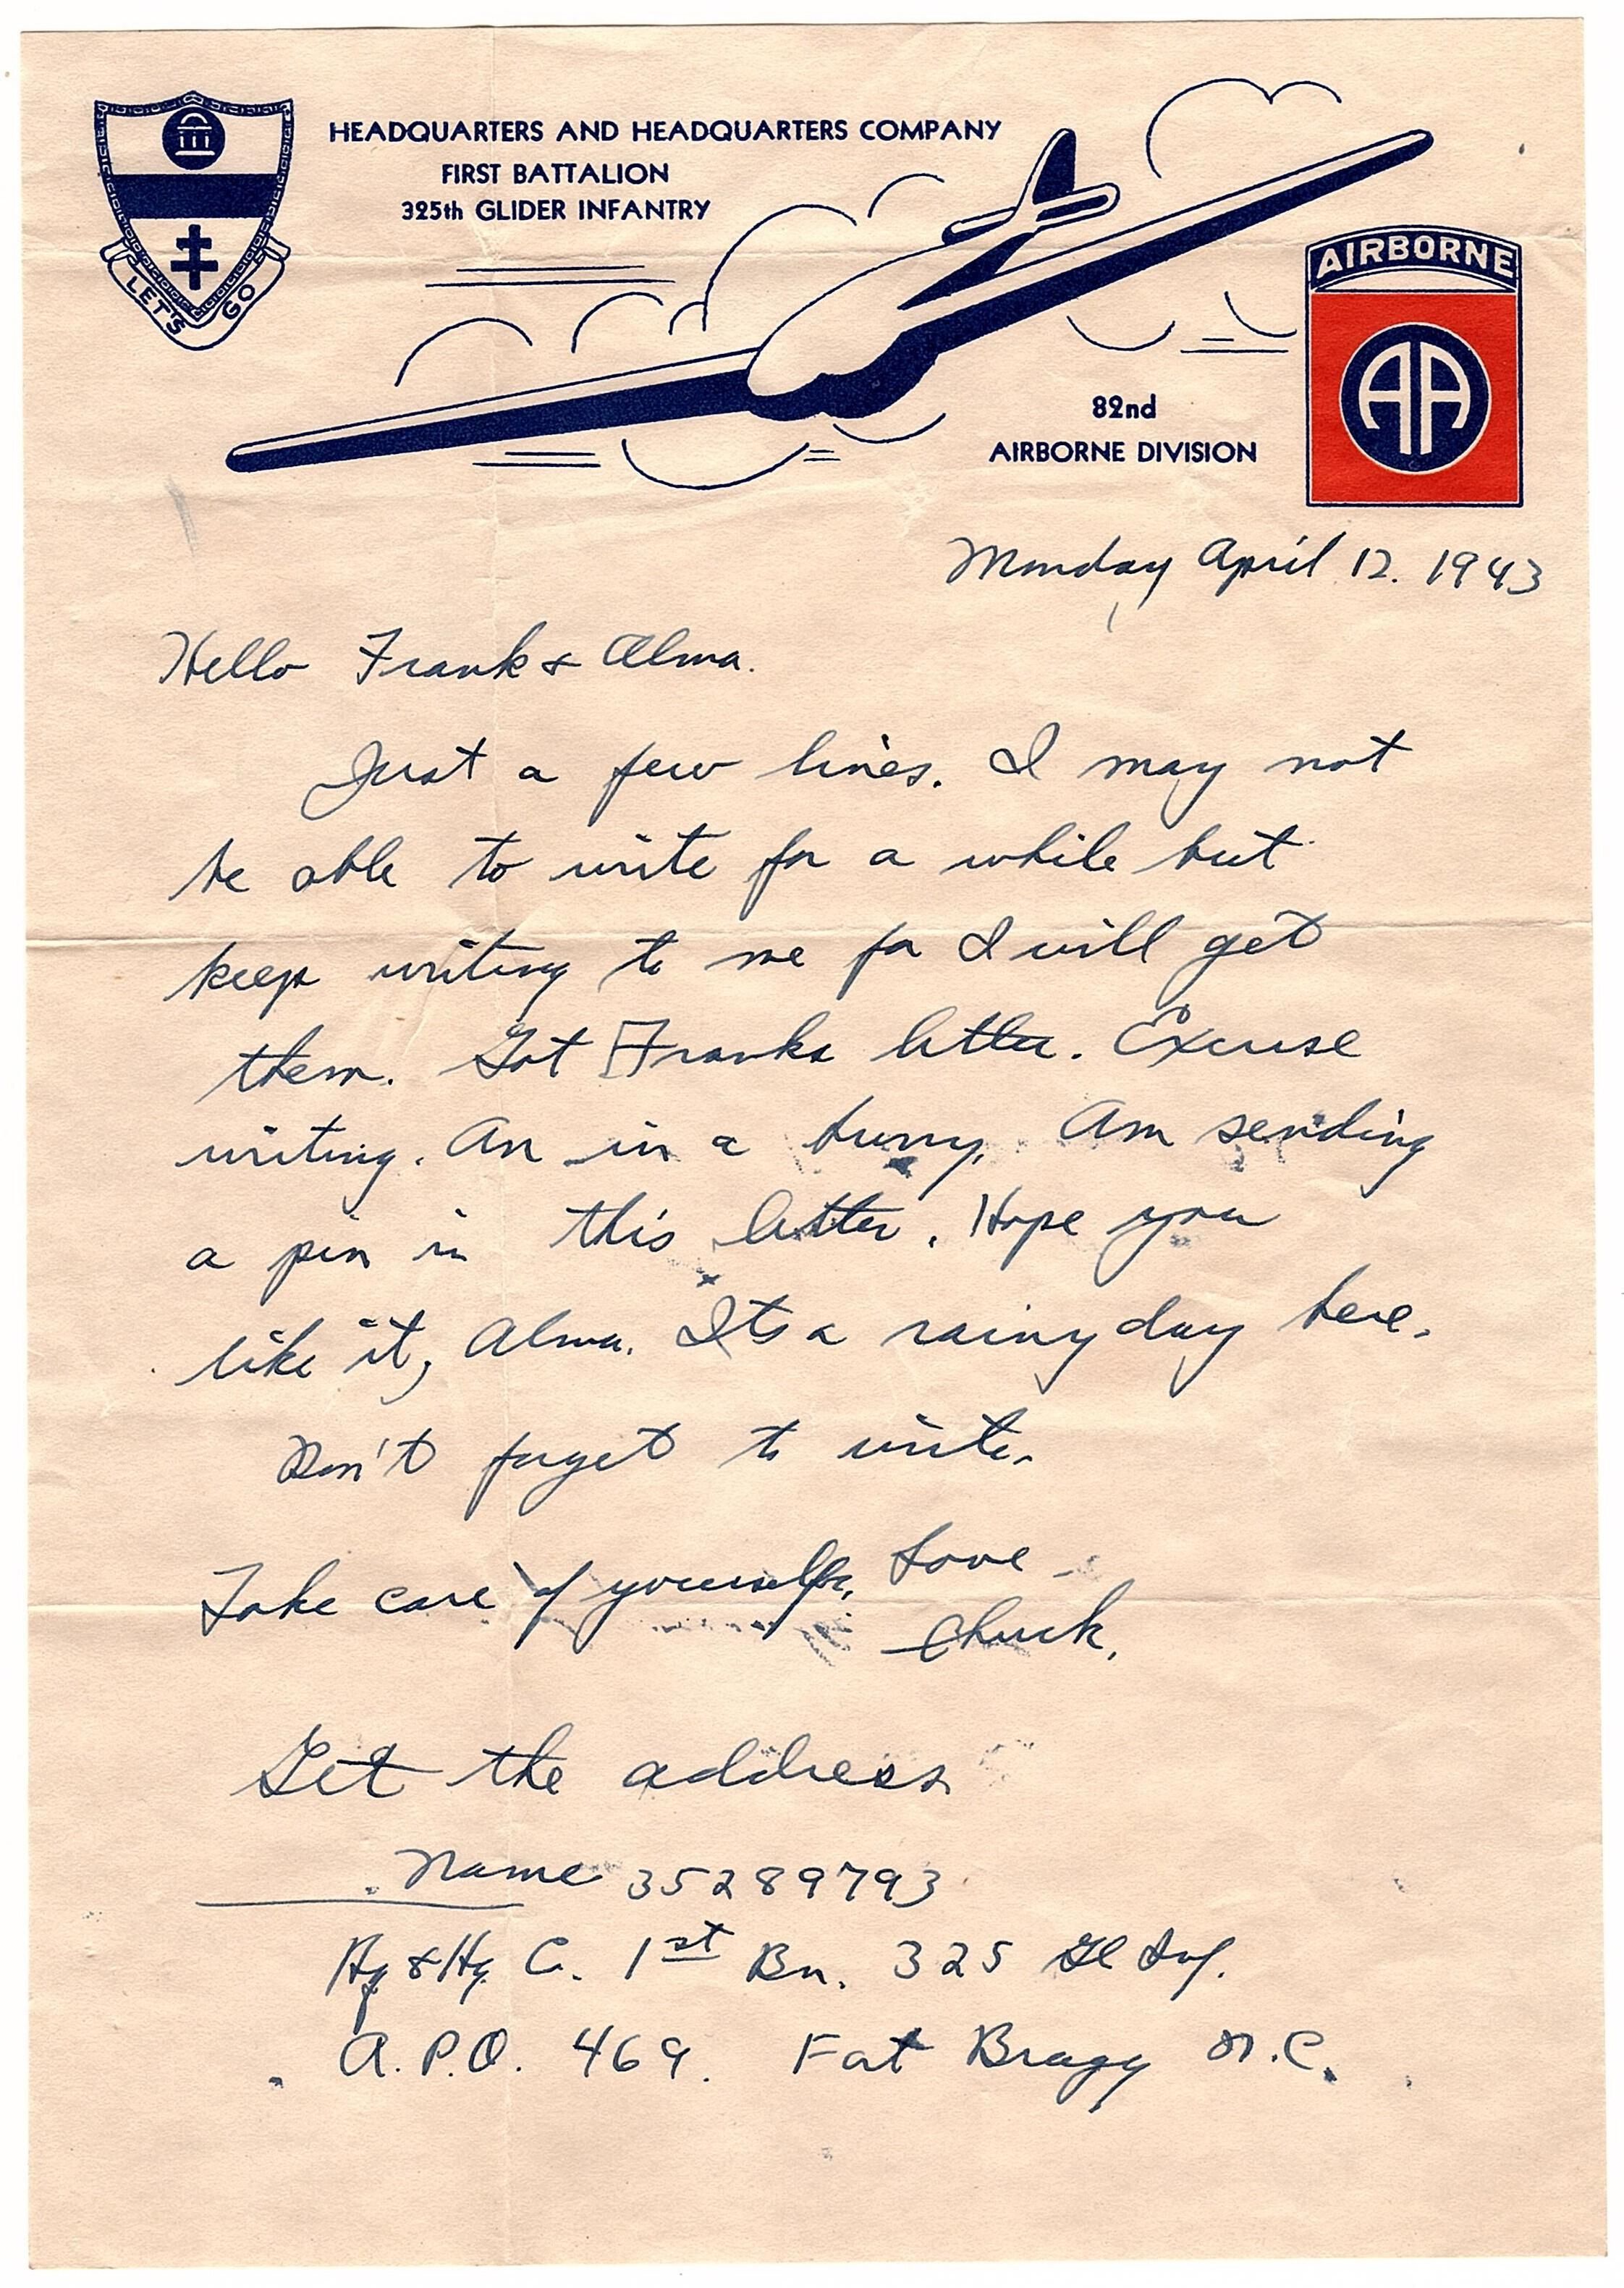 HEADQUARTERS AND HEADQUARTERS COMPANY
FIRST BATTALION
325th GLIDER INFANTRY
LET'S GO
AIRBORNE
AA
82nd
AIRBORNE DIVISION
Monday April 12. 1943
Hello Frank & Alma.
Just a few lines. I may not
be able to write for a while but
keep writing to me for I will get
them. Got Franks letter. Excuse
writing. Am in a hurry. Am sending
a pin in this letter. Hope you
like it, Alma. Its a rainy day here.
Don't forget to write.
Take care of yourselfs. Love
Chuck.
Get the address
Name 35289793
Hq & Hq Co. 1st Bn. 325 Gl Inf.
A.P.O. 469. Fort Bragg N.C.